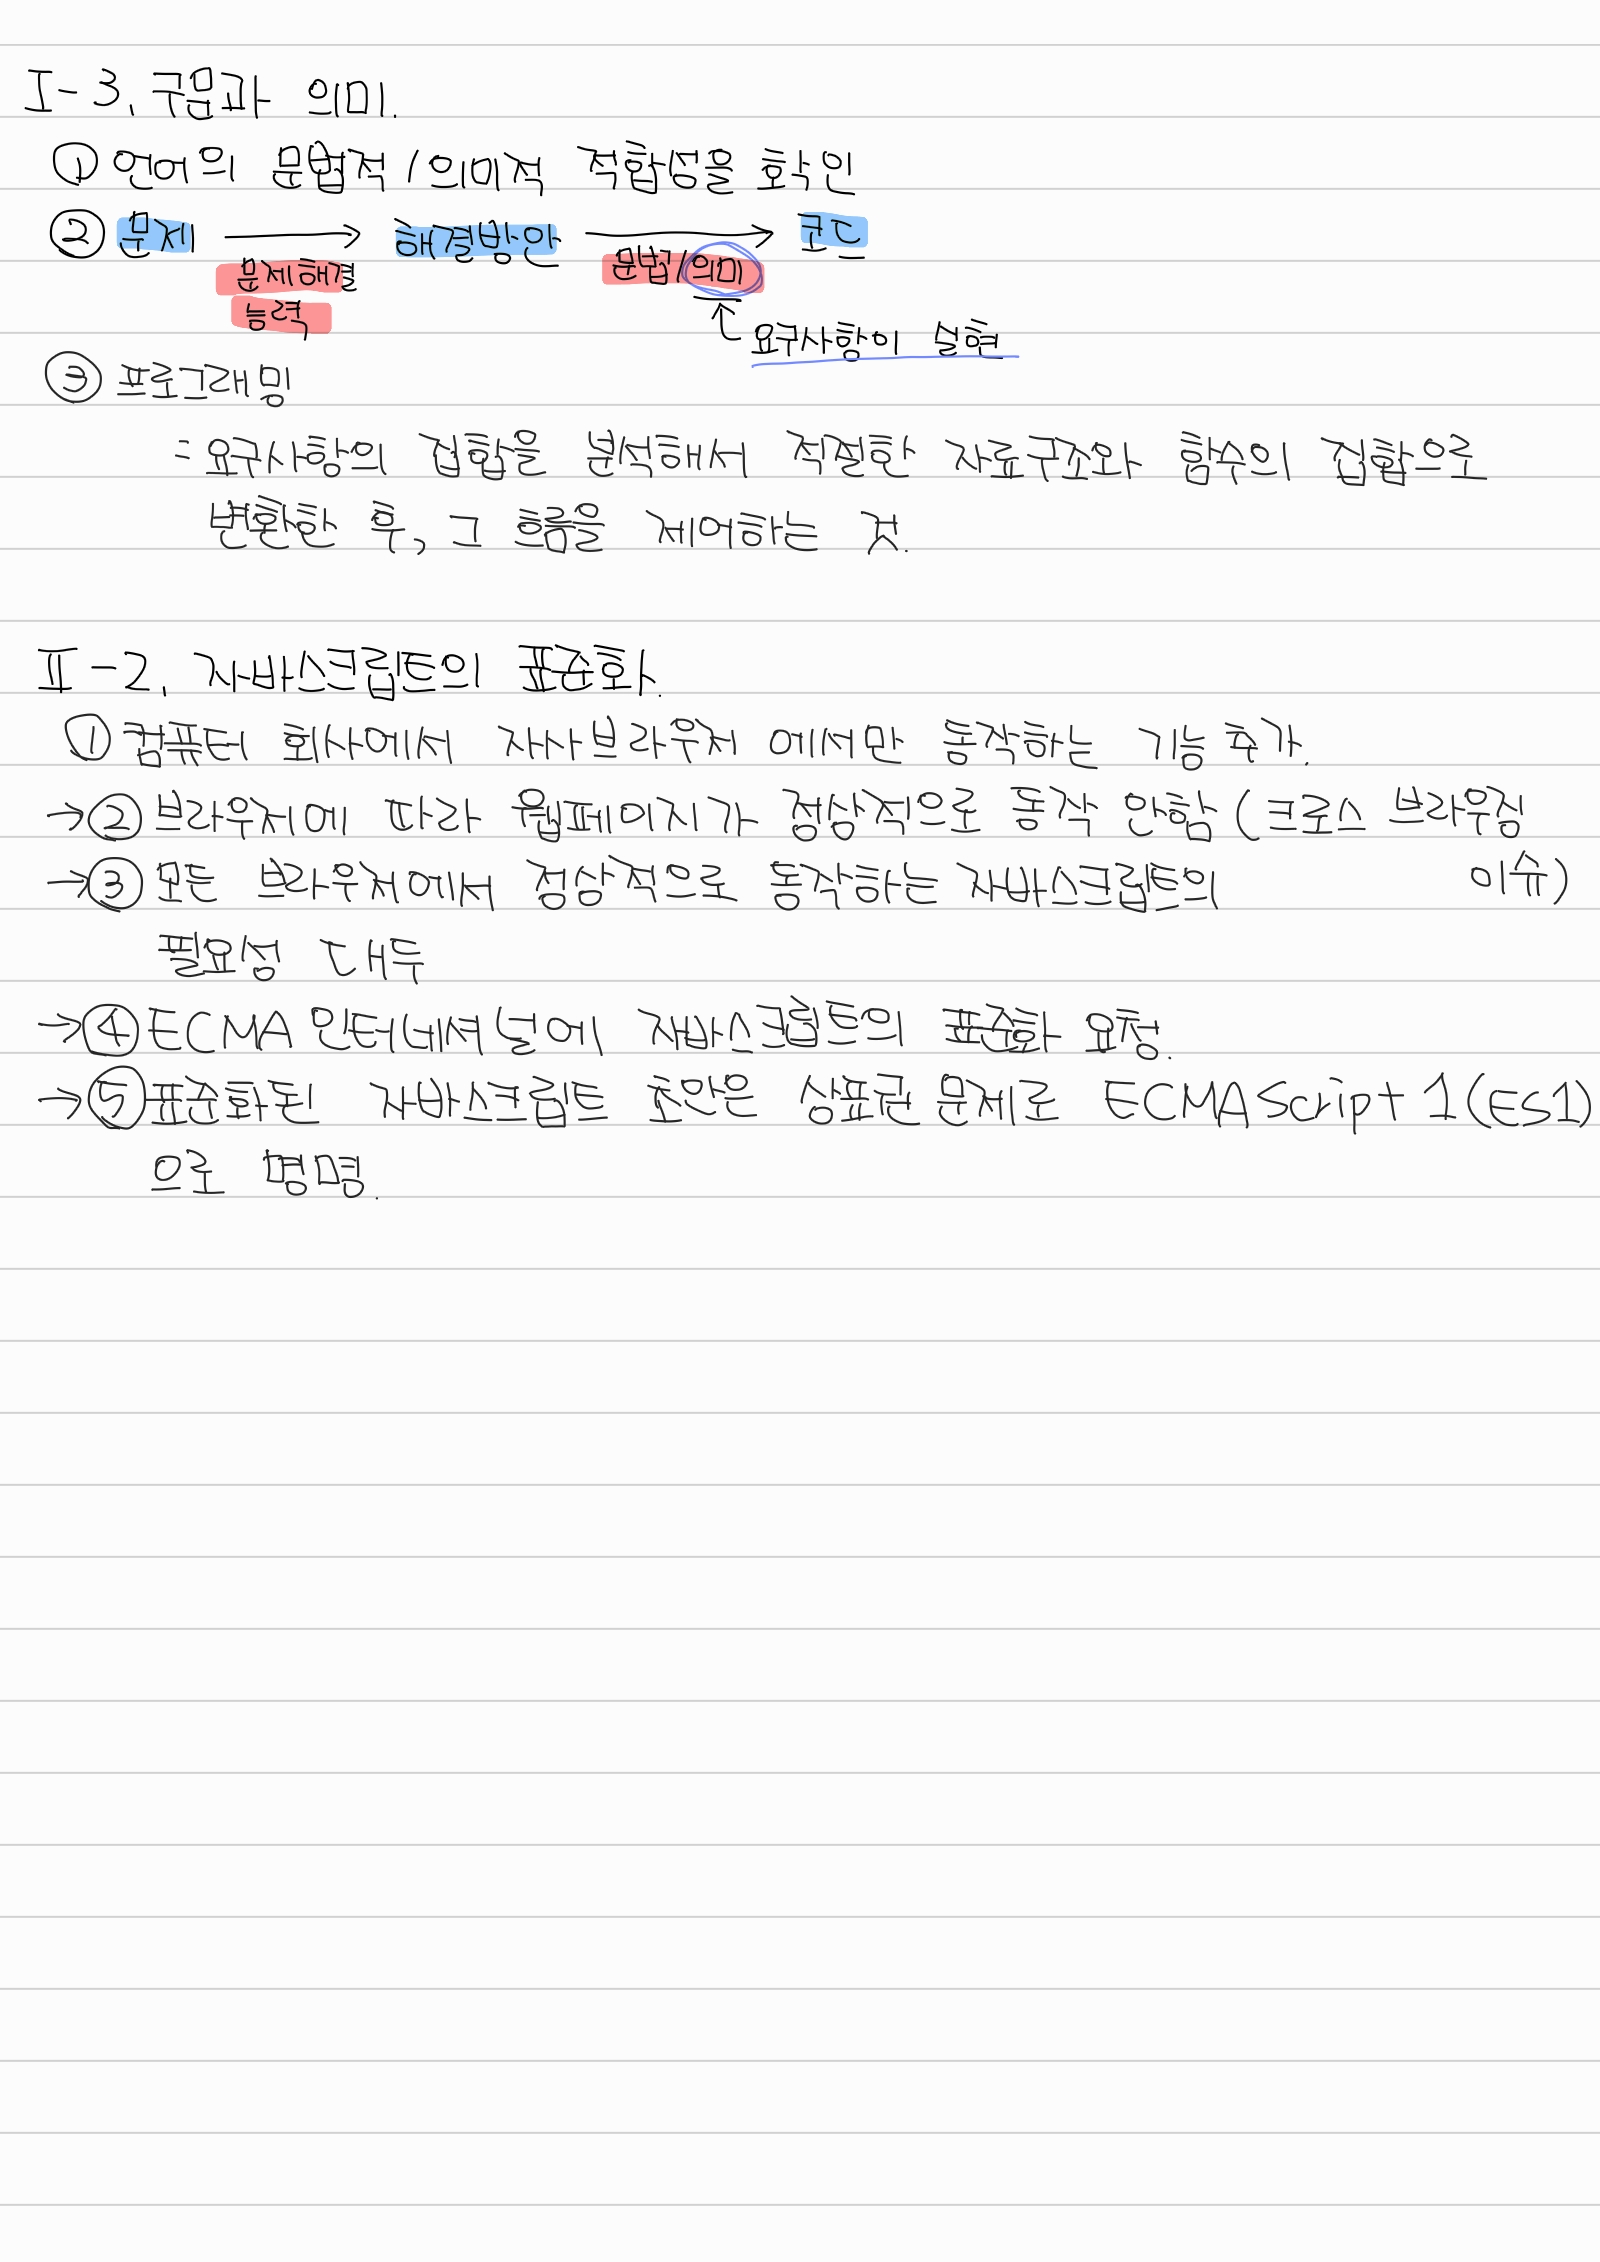 I-3. 구문과 의미.
① 언어의 문법적/의미적 적합성을 확인
② 문제 → 해결방안 → 코드
문제해결 문법/의미
능력
요구사항이 실현
③ 프로그래밍
= 요구사항의 집합을 분석해서 적절한 자료구조와 함수의 집합으로
변환한 후, 그 흐름을 제어하는 것.
II-2. 자바스크립트의 표준화.
① 컴퓨터 회사에서 자사브라우저 에서만 동작하는 기능 추가.
→② 브라우저에 따라 웹페이지가 정상적으로 동작 안함 (크로스 브라우징
이슈)
→③ 모든 브라우저에서 정상적으로 동작하는 자바스크립트의
필요성 대두
→④ ECMA 인터네셔널에 자바스크립트의 표준화 요청.
→⑤ 표준화된 자바스크립트 초안은 상표권 문제로 ECMAScript 1(ES1)
으로 명명.